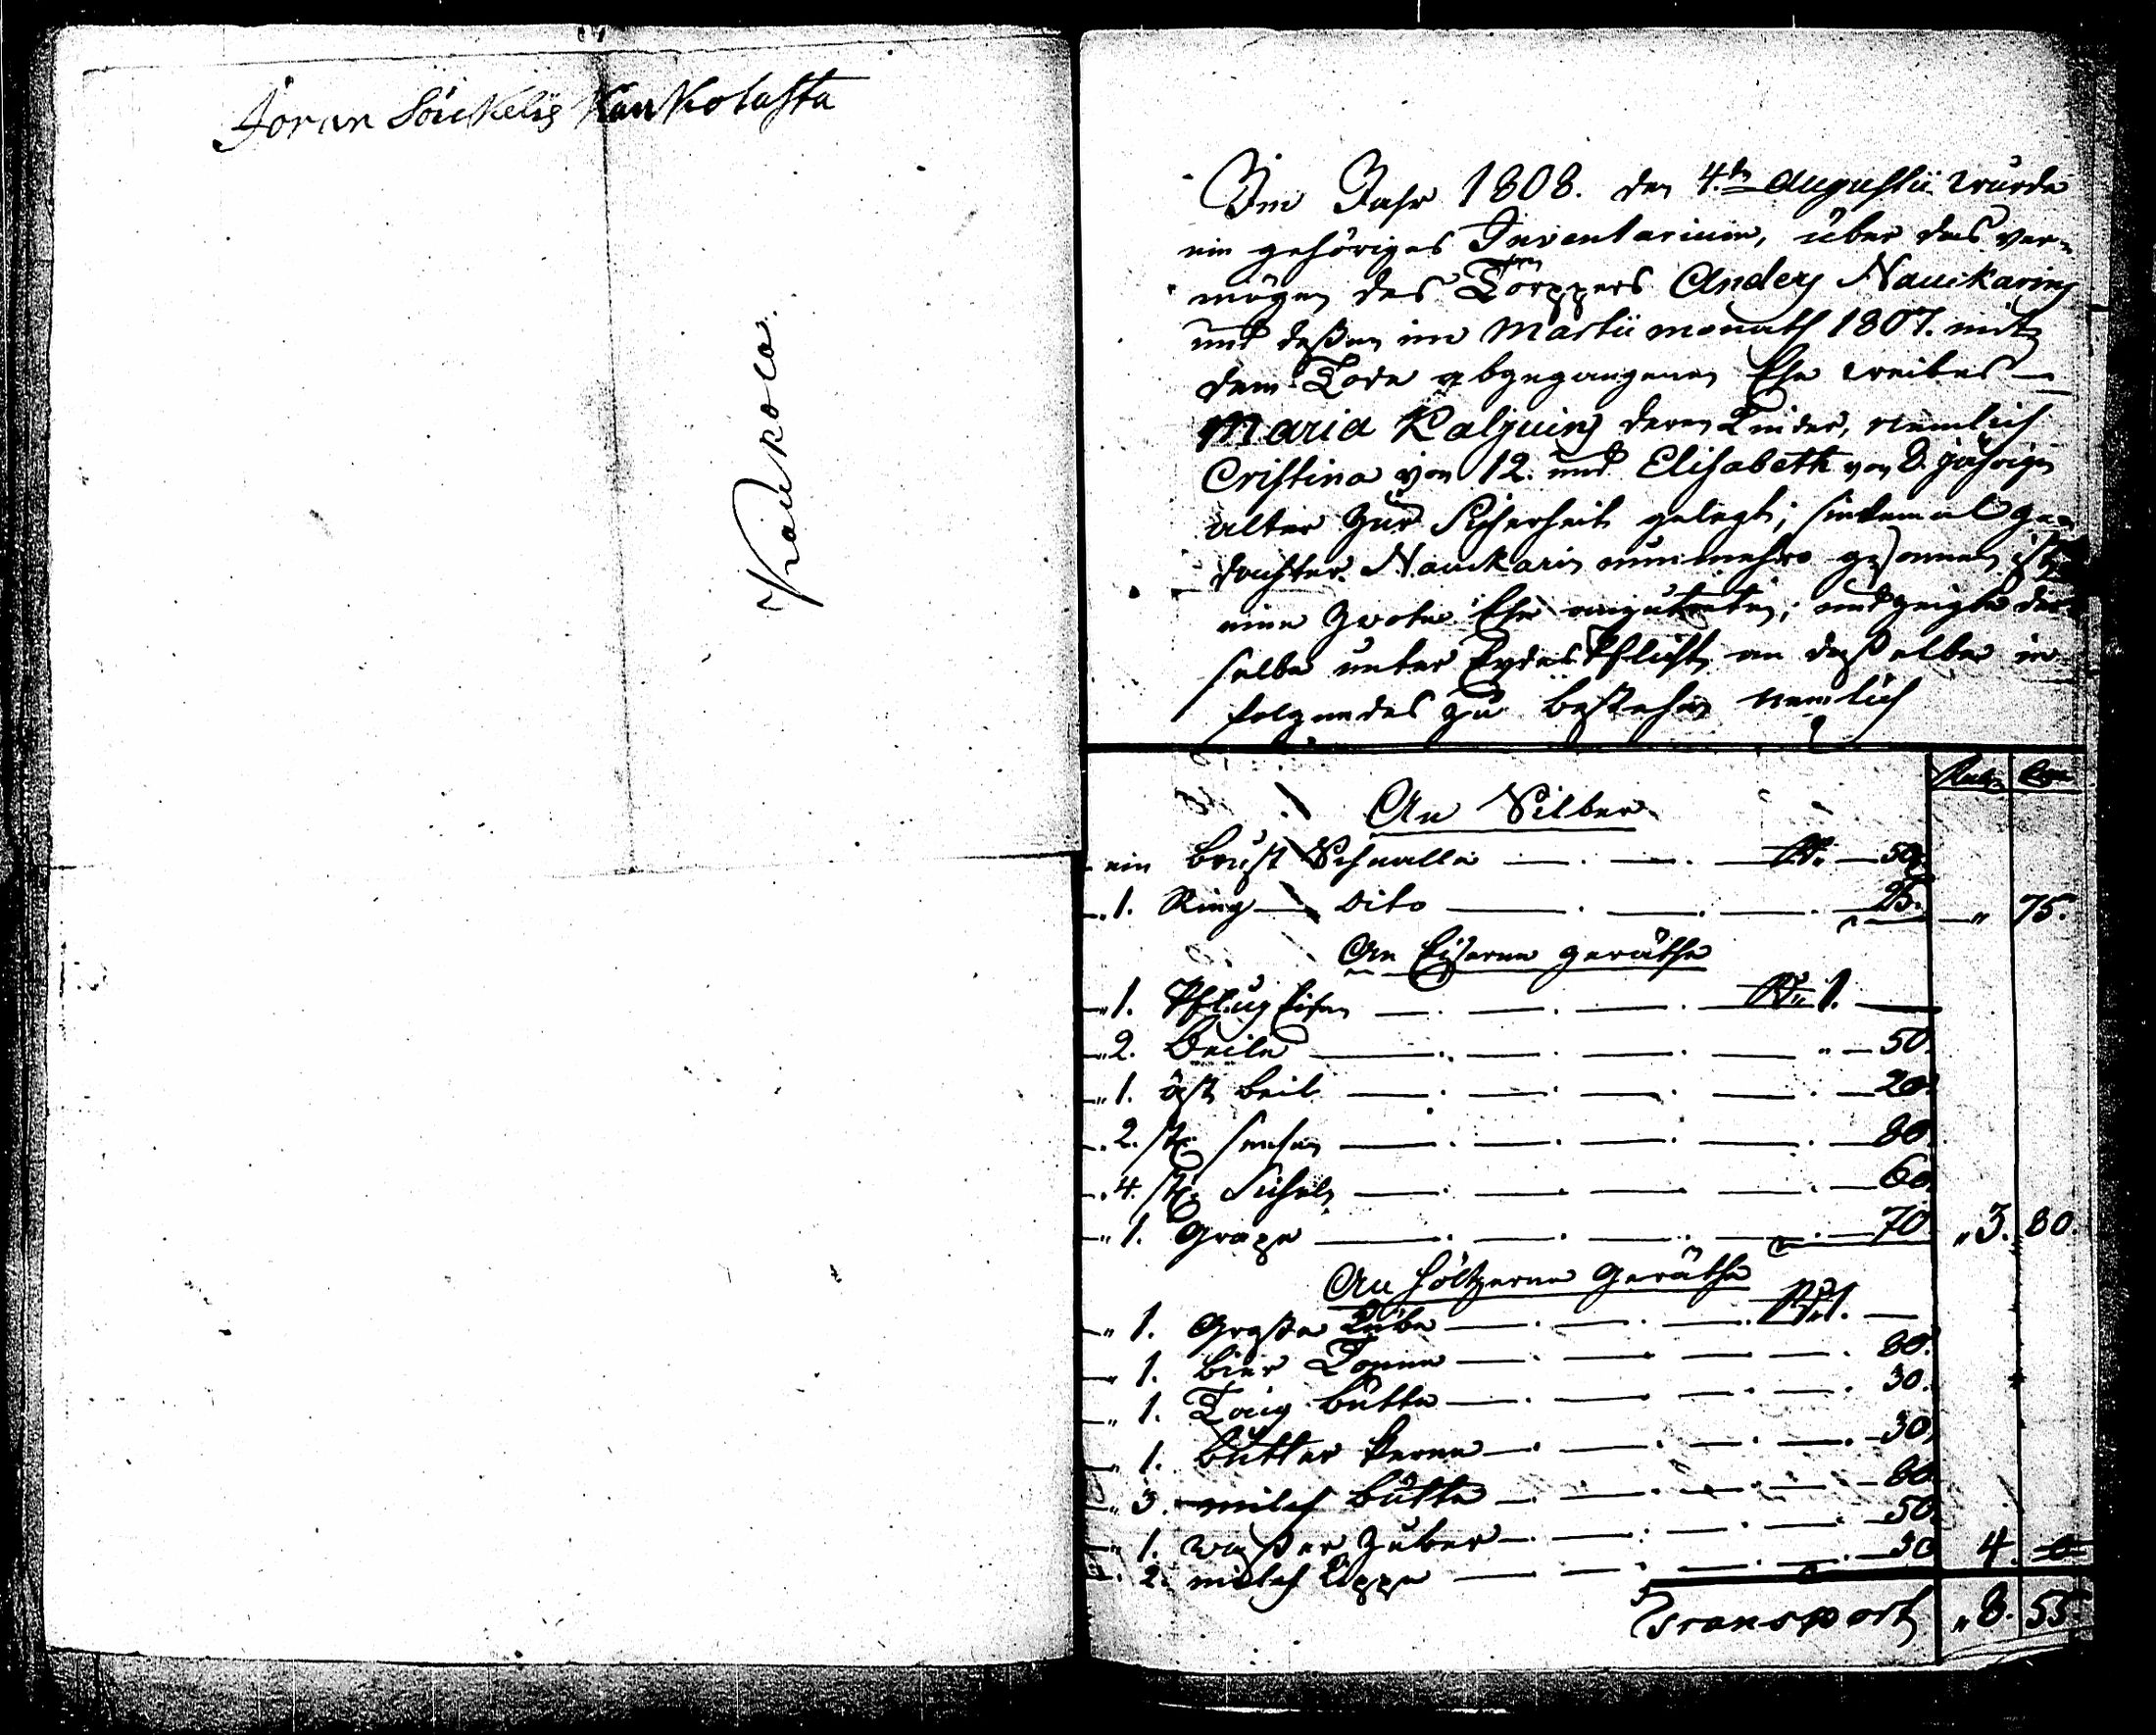 Joran Söickelis Kaukolasta
Kaukola.
Im Jahr 1808. den 4.ten Augustii wurde
ein gehöriges Inventarium, über das ver=
mögen des Torppers Anders Nauckarin
und deßen im Martii monath 1807. mit
dem Tode abgegangenen Ehe weibes
Maria Kaljuin deren Kinder, nemlich
Cristina von 12. und Elisabeth von 8. jährigen
alter zur Sicherheit gelegt; sintemal ge=
dachter Nauckarin nunmehro gesonnen ist
eine zwote Ehe anzutreten; und zeigte der=
selbe unter Eydes Pflicht an daßelbe in
folgendes zu bestehen nemlich
An Silber
ein brust Schnalle — 50.
1. Ring — dito — 25. — " 75.
An Eiserne geräthe
1. Pflug Eisen — R. 1. —
2. Beile — " — 50.
1. äst beil — 20.
2. st. sensen — 80.
4. st. Sicheln — 60.
1. Grape — 70. " 3. 80.
An höltzerne Geräthe
1. Große Kübe — R. 1. —
1. bier Tonne — 80.
1. Taig bütte — 30.
1. butter kerne — 30.
3. milch bütte — 80.
1. waßer Zuber — 50.
2. milch — 30 4. —
Transport " 8. 55